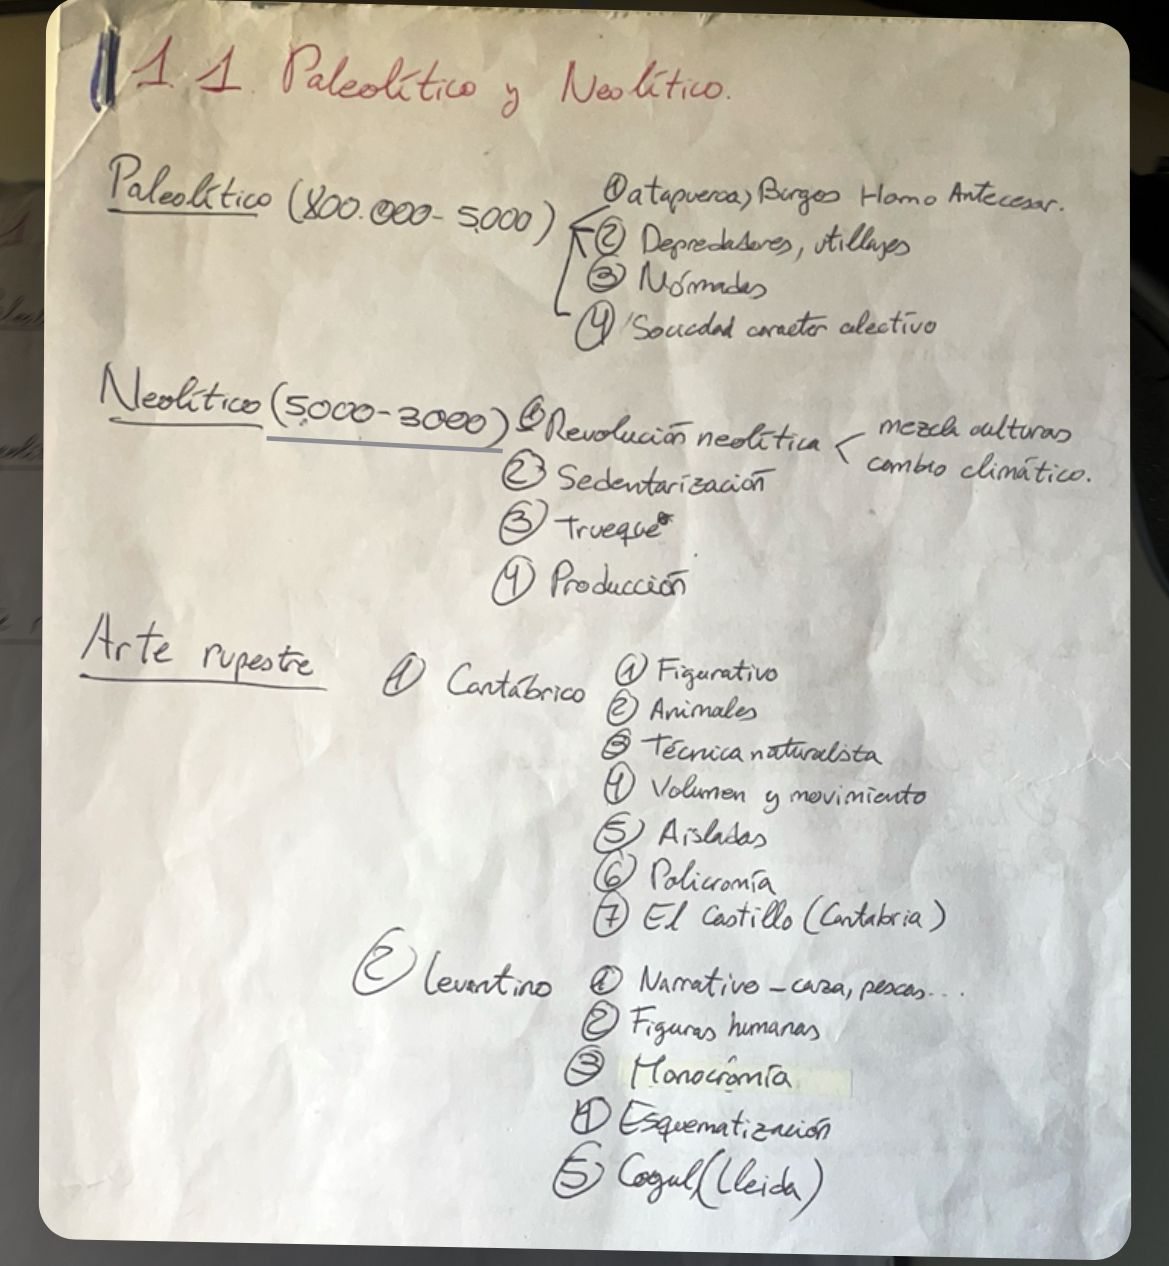 1.1. Paleolítico y Neolítico.
Paleolítico (800.000-5000)
① atapuerca, Burgos Homo Antecesor.
② Depredadores, utillajes
③ Nómadas
④ Sociedad caracter colectivo
Neolítico (5000-3000)
① Revolución neolítica < mezcla culturas
cambio climático.
② Sedentarización
③ Trueque
④ Producción
Arte rupestre
① Cantábrico
① Figurativo
② Animales
③ Técnica naturalista
④ Volumen y movimiento
⑤ Aisladas
⑥ Policromía
⑦ El Castillo (Cantabria)
② levantino
① Narrativo - caza, pescas...
② Figuras humanas
③ Monocromía
④ Esquematización
⑤ Cogul (Lleida)